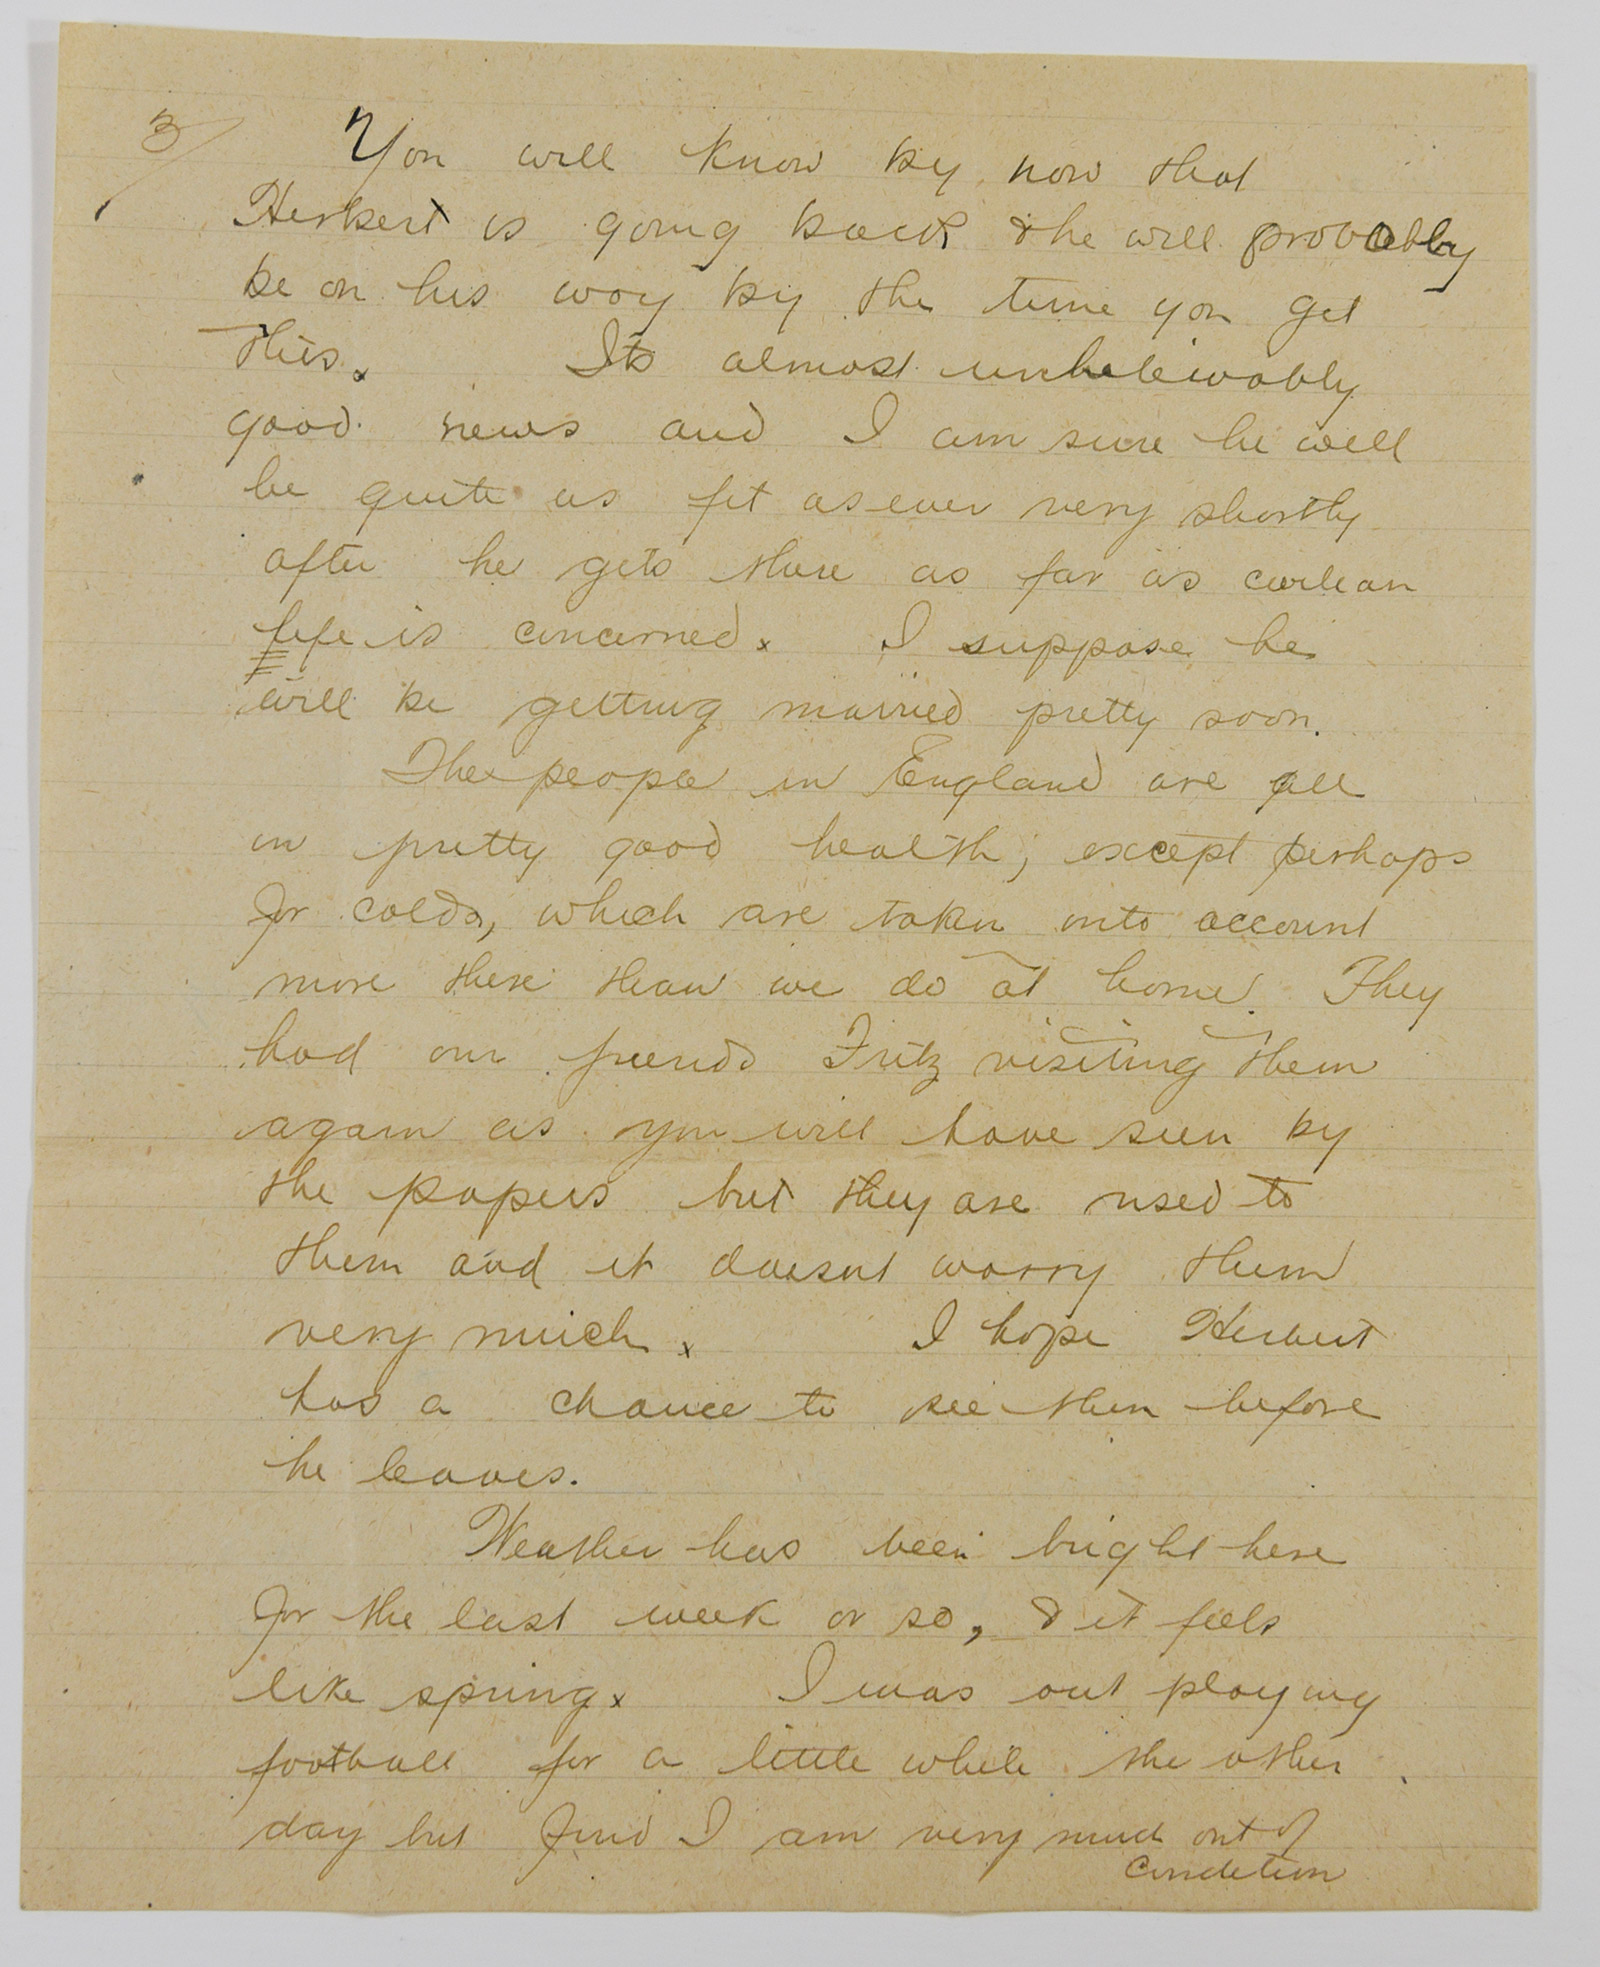 3/
You will know by now that
Herbert is going back & he will probably
be on his way by the time you get
this. Its almost unbeleivably
good news and I am sure he will
be quite as fit as ever very shortly
after he gets there as far as civilean
life is concerned. I suppose he
will be getting married pretty soon.
The people in England are all
in pretty good health, except perhaps
for colds, which are taken into account
more there than we do at home. They
had our friends Fritz visiting them
again as you will have seen by
the papers but they are used to
them and it doesnt worry them
very much. I hope Herbert
has a chance to see them before
he leaves.
Weather has been bright here
for the last week or so, & it feels
like spring. I was out playing
football for a little while the other
day but find I am very much out of
condition